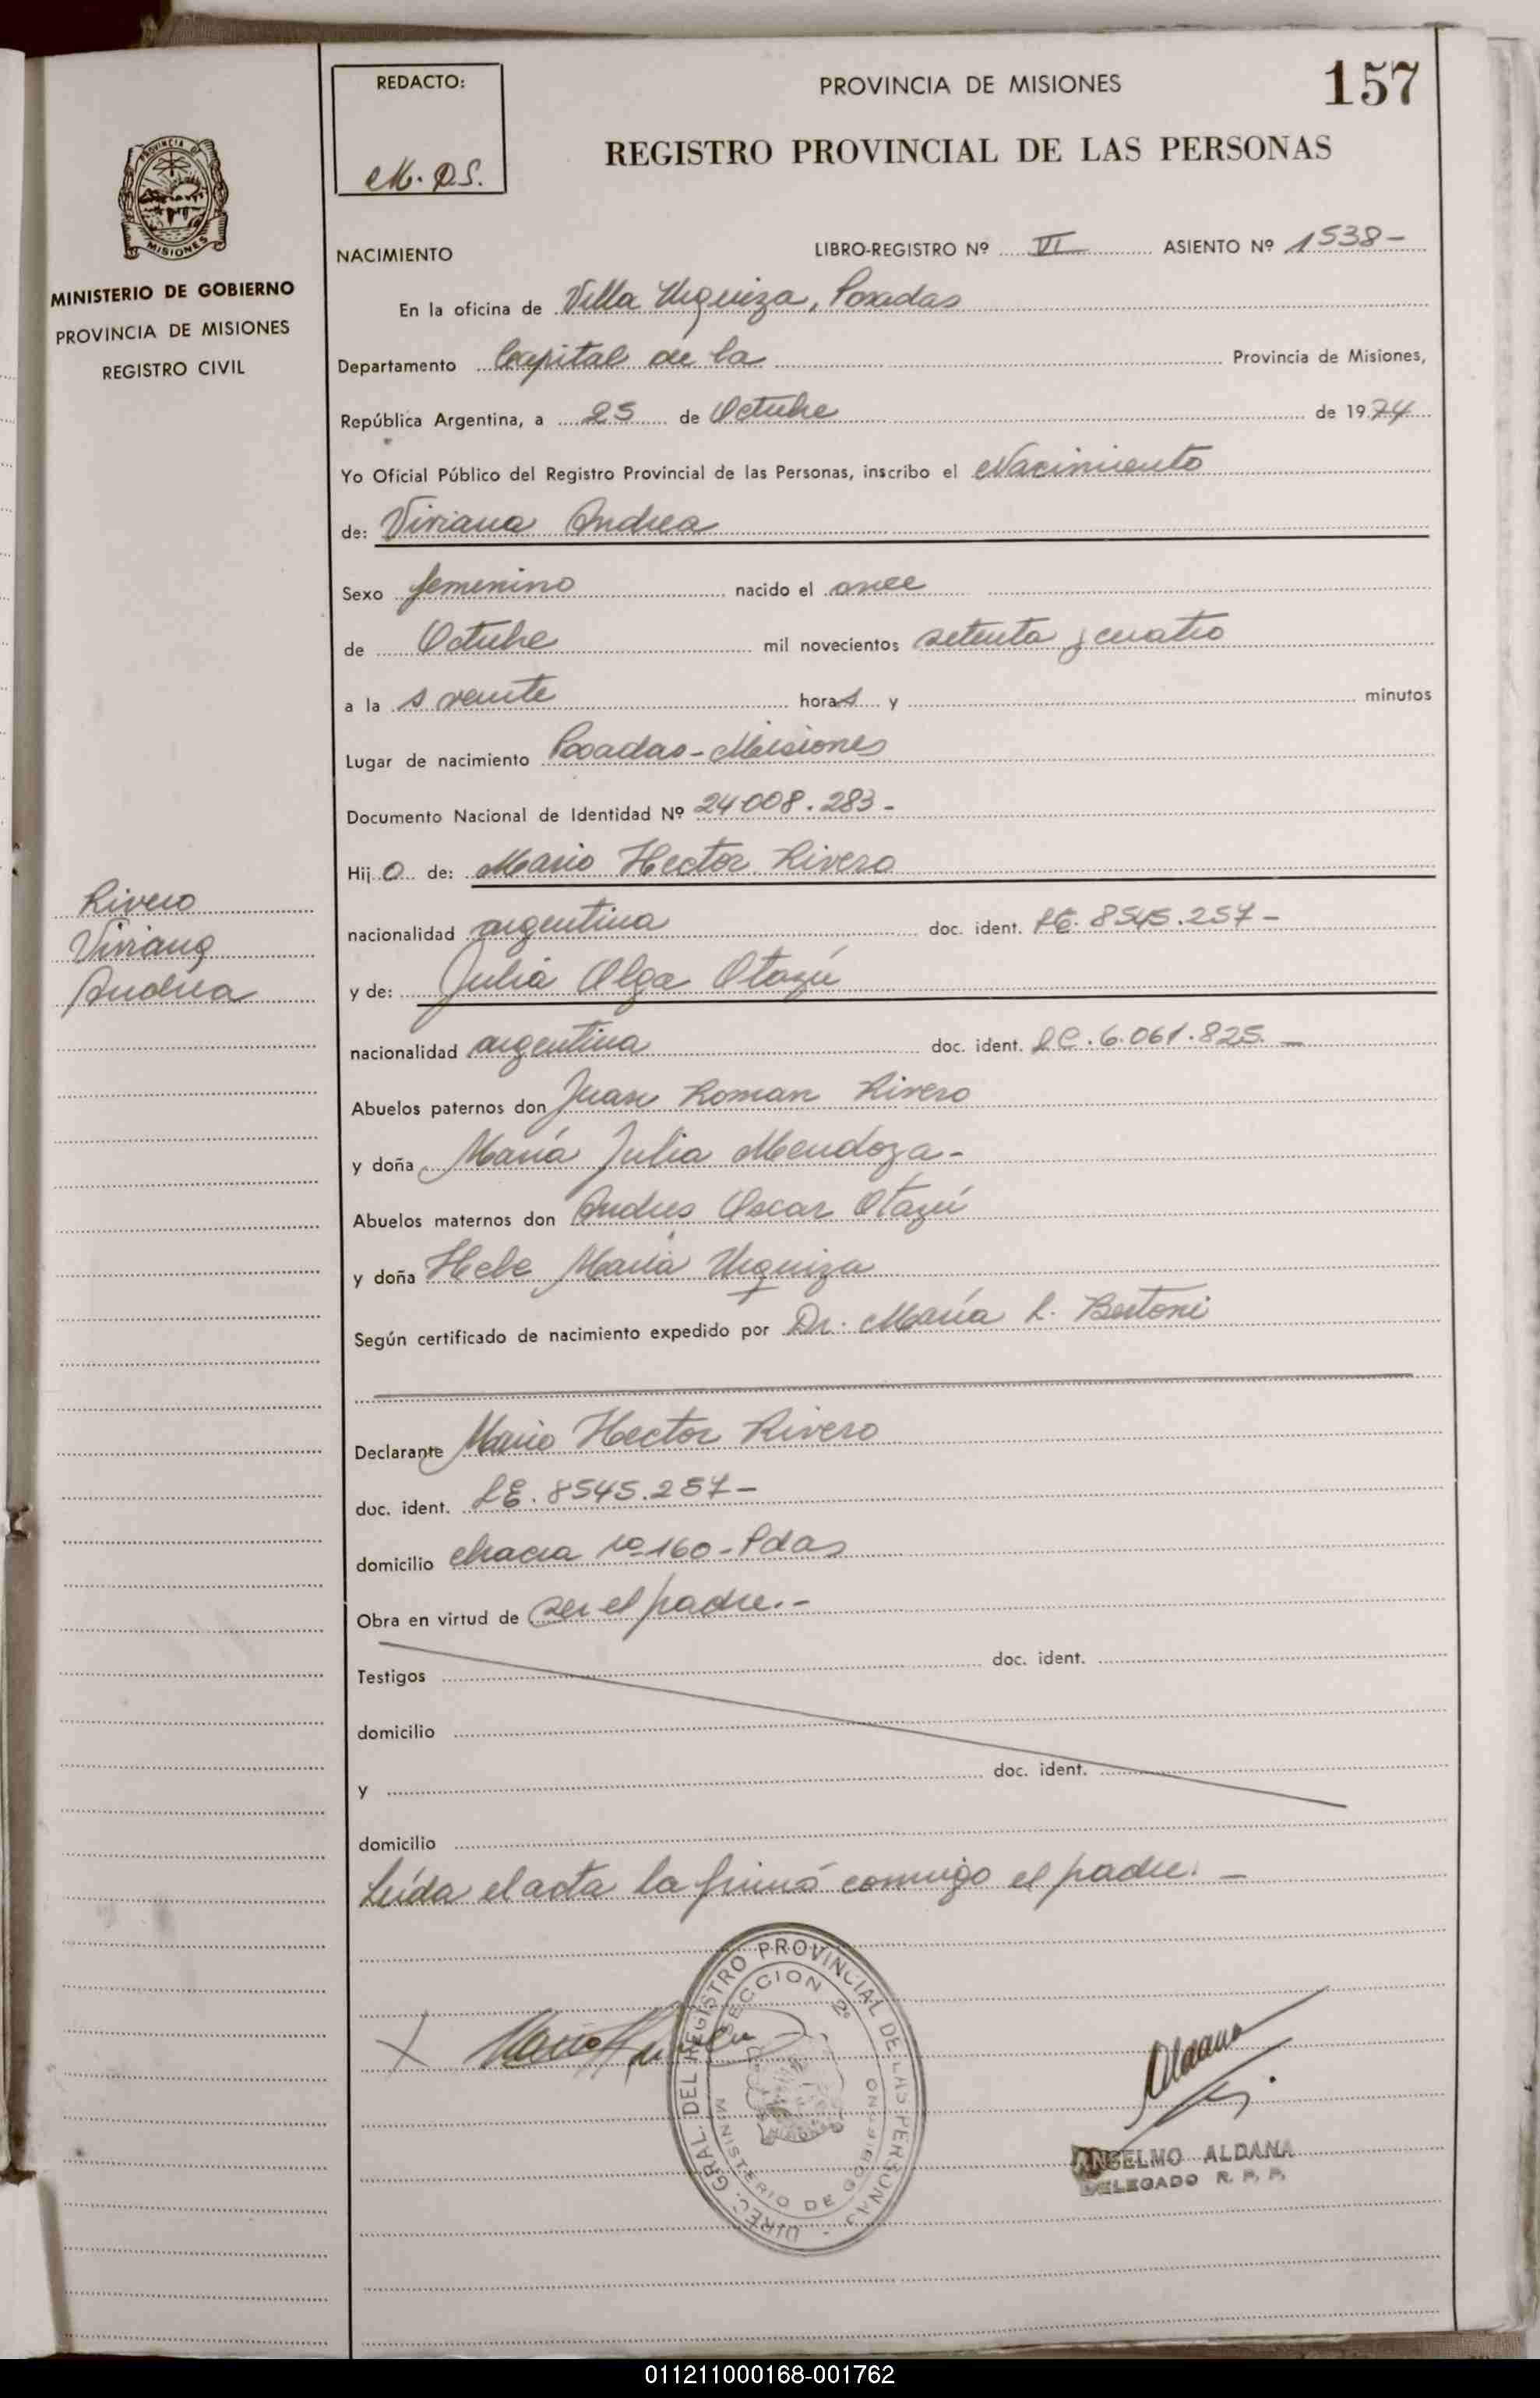 157
REDACTO:
M. D.S.
PROVINCIA DE MISIONES
REGISTRO PROVINCIAL DE LAS PERSONAS
PROVINCIA DE
MISIONES
MINISTERIO DE GOBIERNO
PROVINCIA DE MISIONES
REGISTRO CIVIL
NACIMIENTO LIBRO-REGISTRO Nº VI ASIENTO Nº 1538-
En la oficina de Villa Urquiza, Posadas
Departamento Capital de la Provincia de Misiones,
República Argentina, a 25 de Octubre de 1974
Yo Oficial Público del Registro Provincial de las Personas, inscribo el Nacimiento
de: Viviana Andrea
Sexo femenino nacido el once
de Octubre mil novecientos setenta y cuatro
a la s veinte horas y minutos
Lugar de nacimiento Posadas-Misiones
Documento Nacional de Identidad Nº 24.008.283-
Hij o de: Mario Hector Rivero
Rivero
Viviana
Andrea
nacionalidad argentina doc. ident. LE. 8545.257-
y de: Julia Olga Otazú
nacionalidad argentina doc. ident. LC. 6.061.825.-
Abuelos paternos don Juan Roman Rivero
y doña María Julia Mendoza-
Abuelos maternos don Andres Oscar Otazú
y doña Hebe María Urquiza
Según certificado de nacimiento expedido por Dr. María L. Bertoni
Declarante Mario Hector Rivero
doc. ident. LE. 8545.257-
domicilio chacra Nº 160-Pdas
Obra en virtud de ser el padre.-
Testigos doc. ident.
domicilio
y doc. ident.
domicilio
Leída el acta la firmó conmigo el padre.-
DIREC. GRAL. DEL REGISTRO PROVINCIAL DE LAS PERSONAS
SECCION 2º
MINISTERIO DE GOBIERNO
Aldana
ANSELMO ALDANA
DELEGADO R. P. P.
011211000168-001762